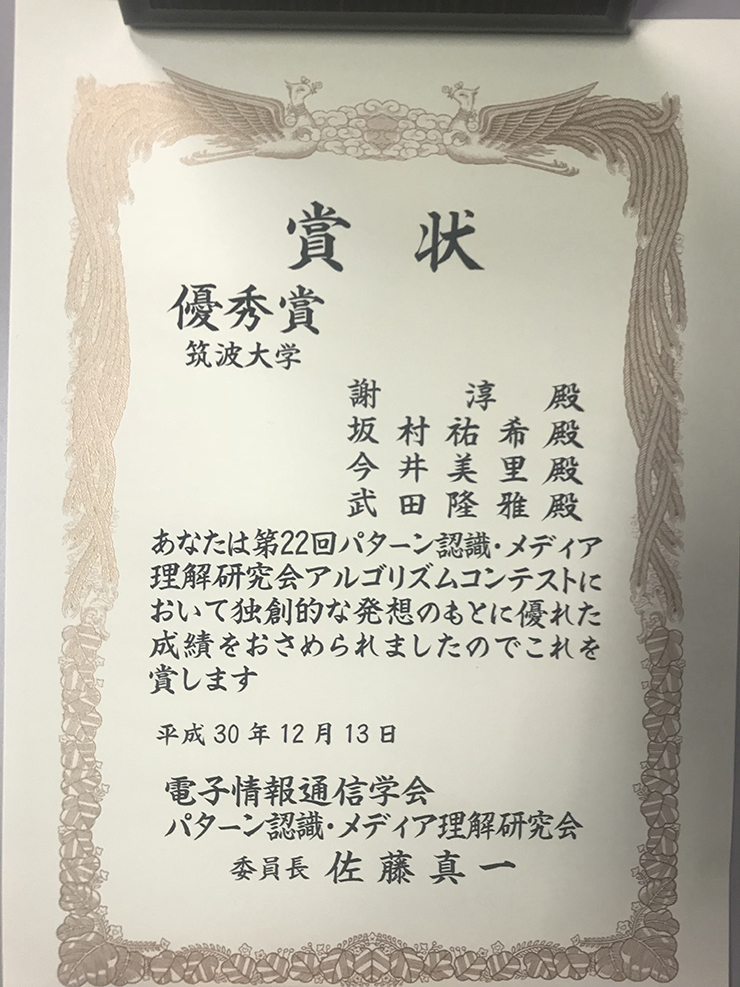 賞状
優秀賞
筑波大学
謝淳殿
坂村祐希殿
今井美里殿
武田隆雅殿
あなたは第22回パターン認識・メディア
理解研究会アルゴリズムコンテストに
おいて独創的な発想のもとに優れた
成績をおさめられましたのでこれを
賞します
平成30年12月13日
電子情報通信学会
パターン認識・メディア理解研究会
委員長 佐藤真一